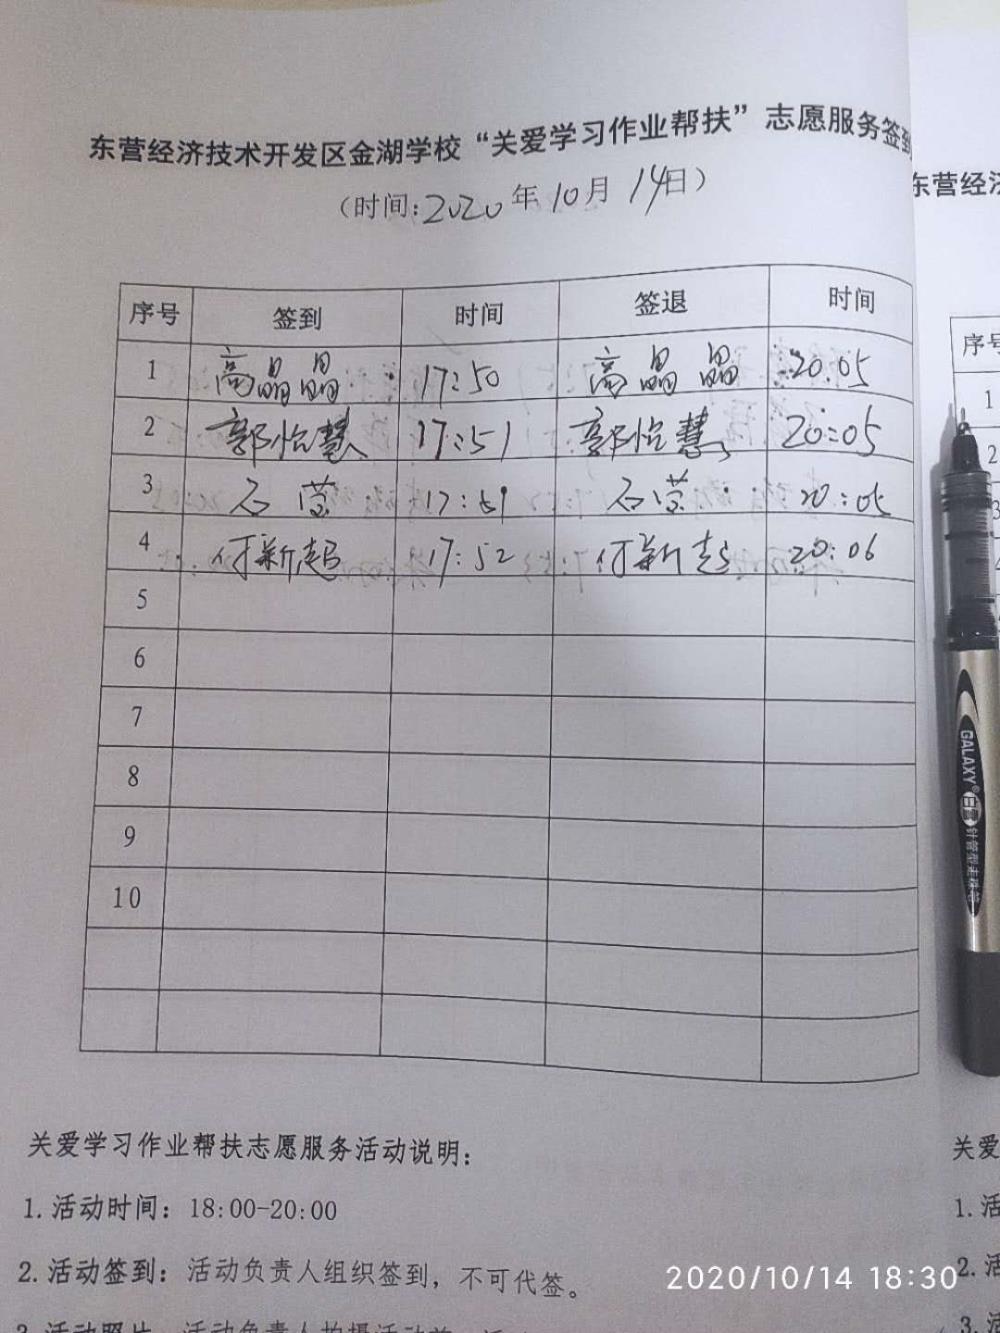 东营经济技术开发区金湖学校“关爱学习作业帮扶”志愿服务签到
（时间:2020年10月14日）
序号 签到 时间 签退 时间
1 高晶晶 17:50 高晶晶 20:05
2 郭怡慧 17:51 郭怡慧 20:05
3 石莹 17:51 石莹 20:05
4 付新超 17:52 付新超 20:06
5
6
7
8
9
10
关爱学习作业帮扶志愿服务活动说明：
1.活动时间：18:00-20:00
2.活动签到：活动负责人组织签到，不可代签。
东营经济
序号
1
2
3
4
关爱
1.活
2.活
3.活
GALAXY
针管型走珠笔
2020/10/14 18:30